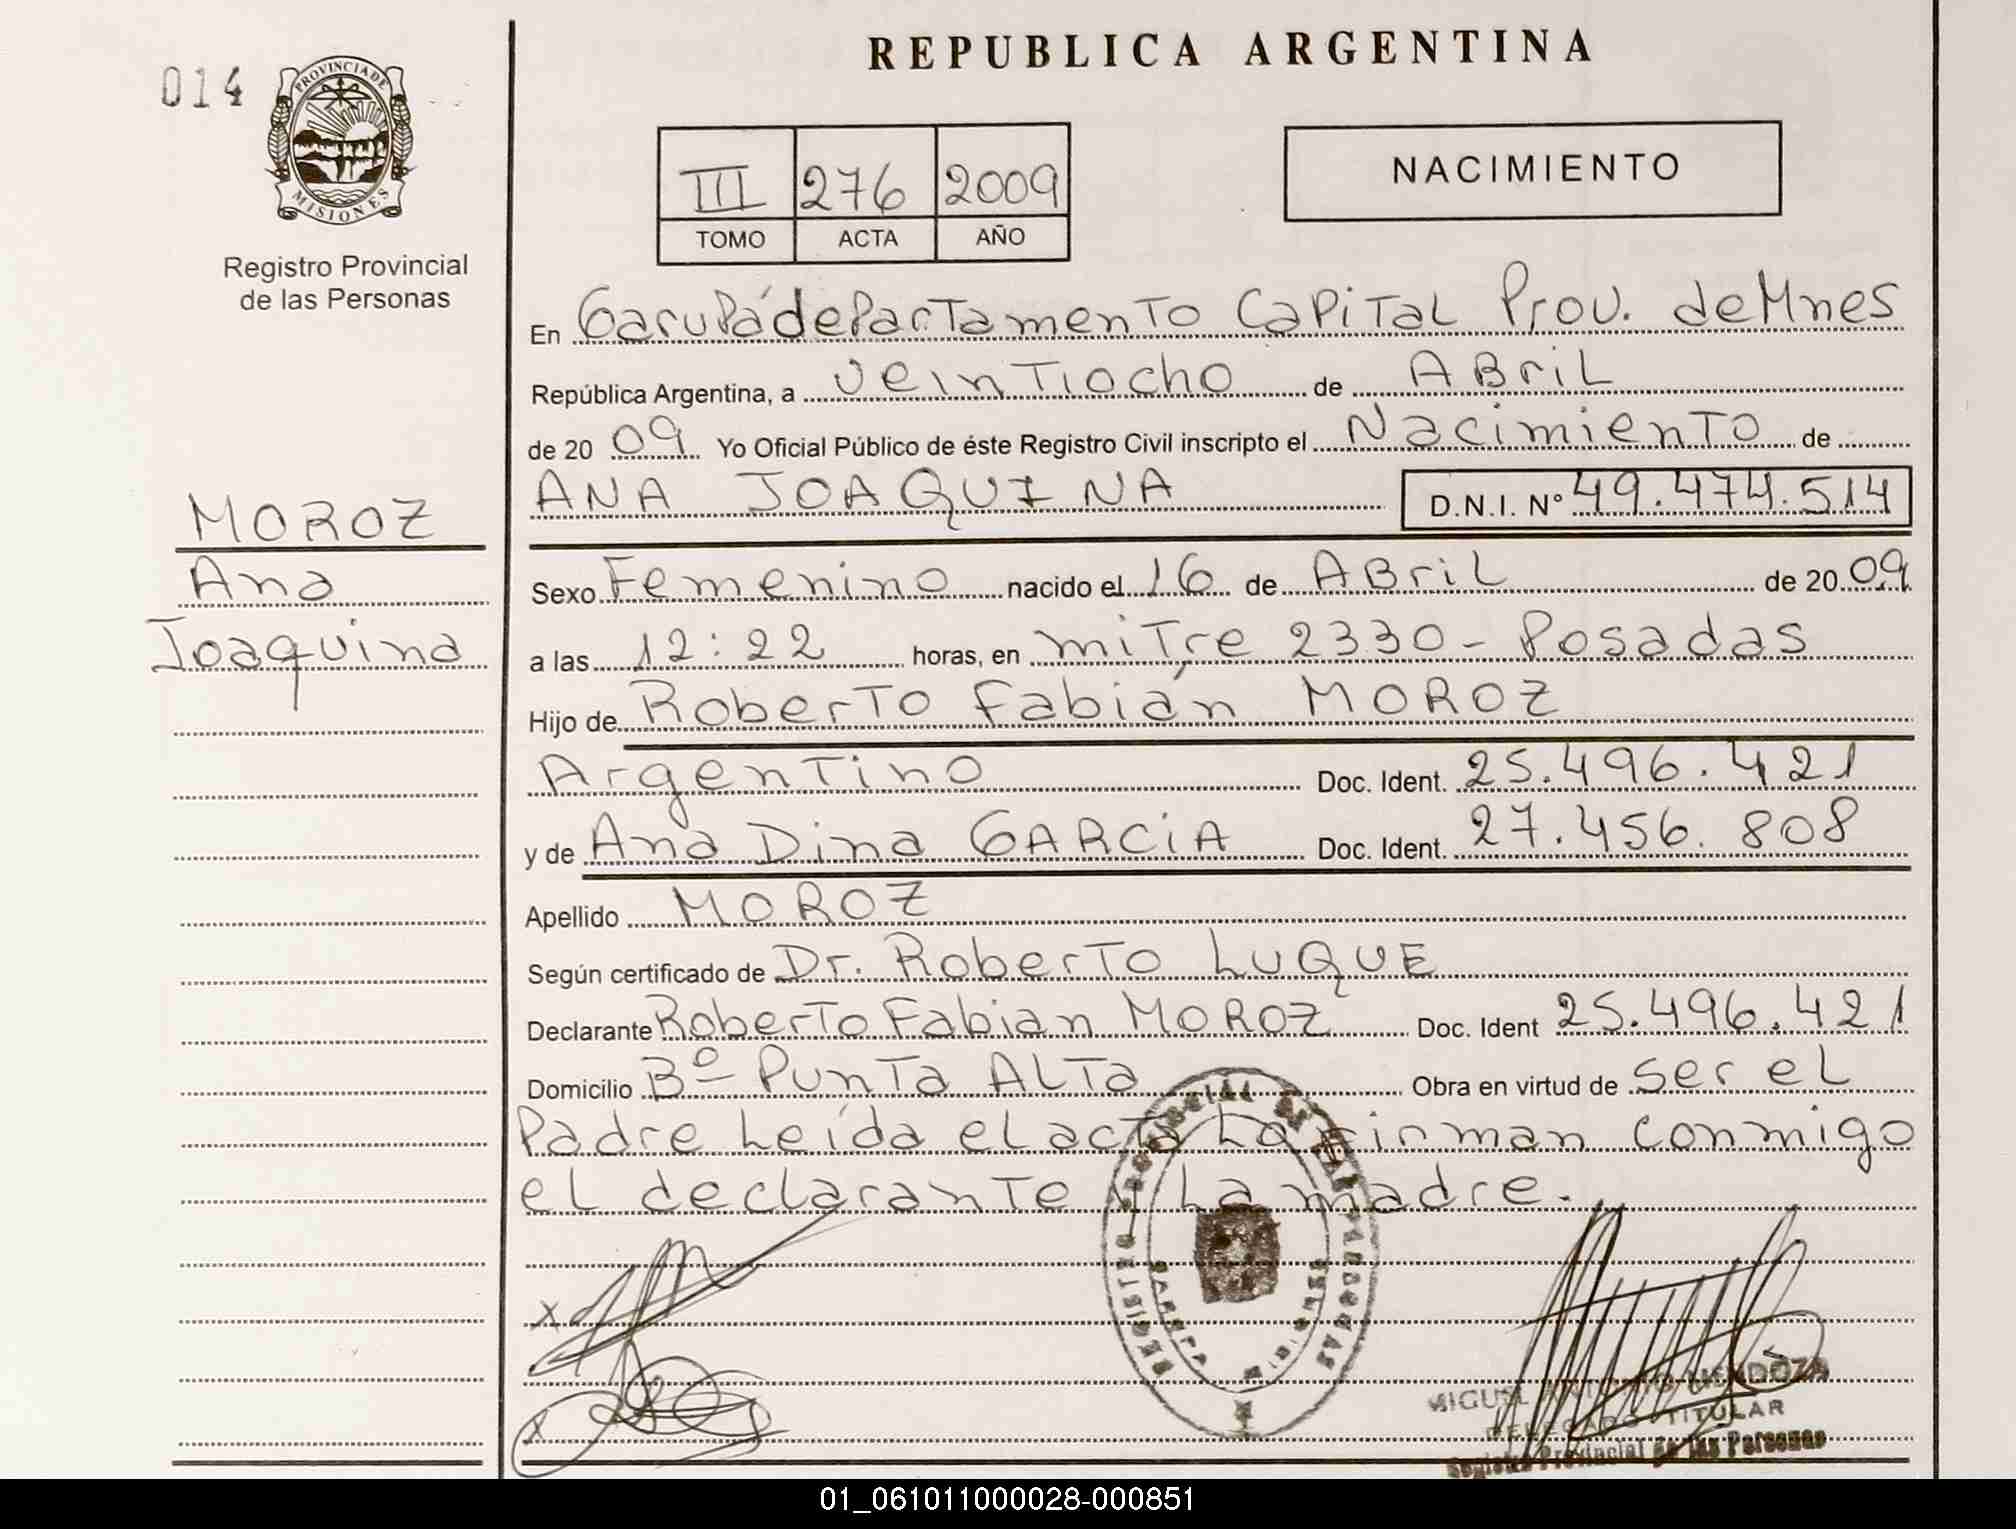 REPUBLICA ARGENTINA
014
PROVINCIA DE
MISIONES
Registro Provincial
de las Personas
III 276 2009
TOMO ACTA AÑO
NACIMIENTO
En Garupá departamento Capital Prov. de Mnes
República Argentina, a veintiocho de Abril
de 2009 Yo Oficial Público de éste Registro Civil inscripto el Nacimiento de
ANA JOAQUINA D.N.I. Nº 49.474.514
MOROZ
Ana
Joaquina
Sexo Femenino nacido el 16 de ABril de 2009
a las 12:22 horas, en mitre 2330 - Posadas
Hijo de Roberto Fabián MOROZ
Argentino Doc. Ident. 25.496.421
y de Ana Dina GARCIA Doc. Ident. 27.456.808
Apellido MOROZ
Según certificado de Dr. Roberto LUQUE
Declarante Roberto Fabian MOROZ Doc. Ident 25.496.421
Domicilio Bº Punta ALTA Obra en virtud de ser el
Padre Leída el acta La firman conmigo
el declarante y La madre.
MIGUEL ANTONIO MENDOZA
DELEGADO TITULAR
Registro Provincial de las Personas
01_061011000028-000851